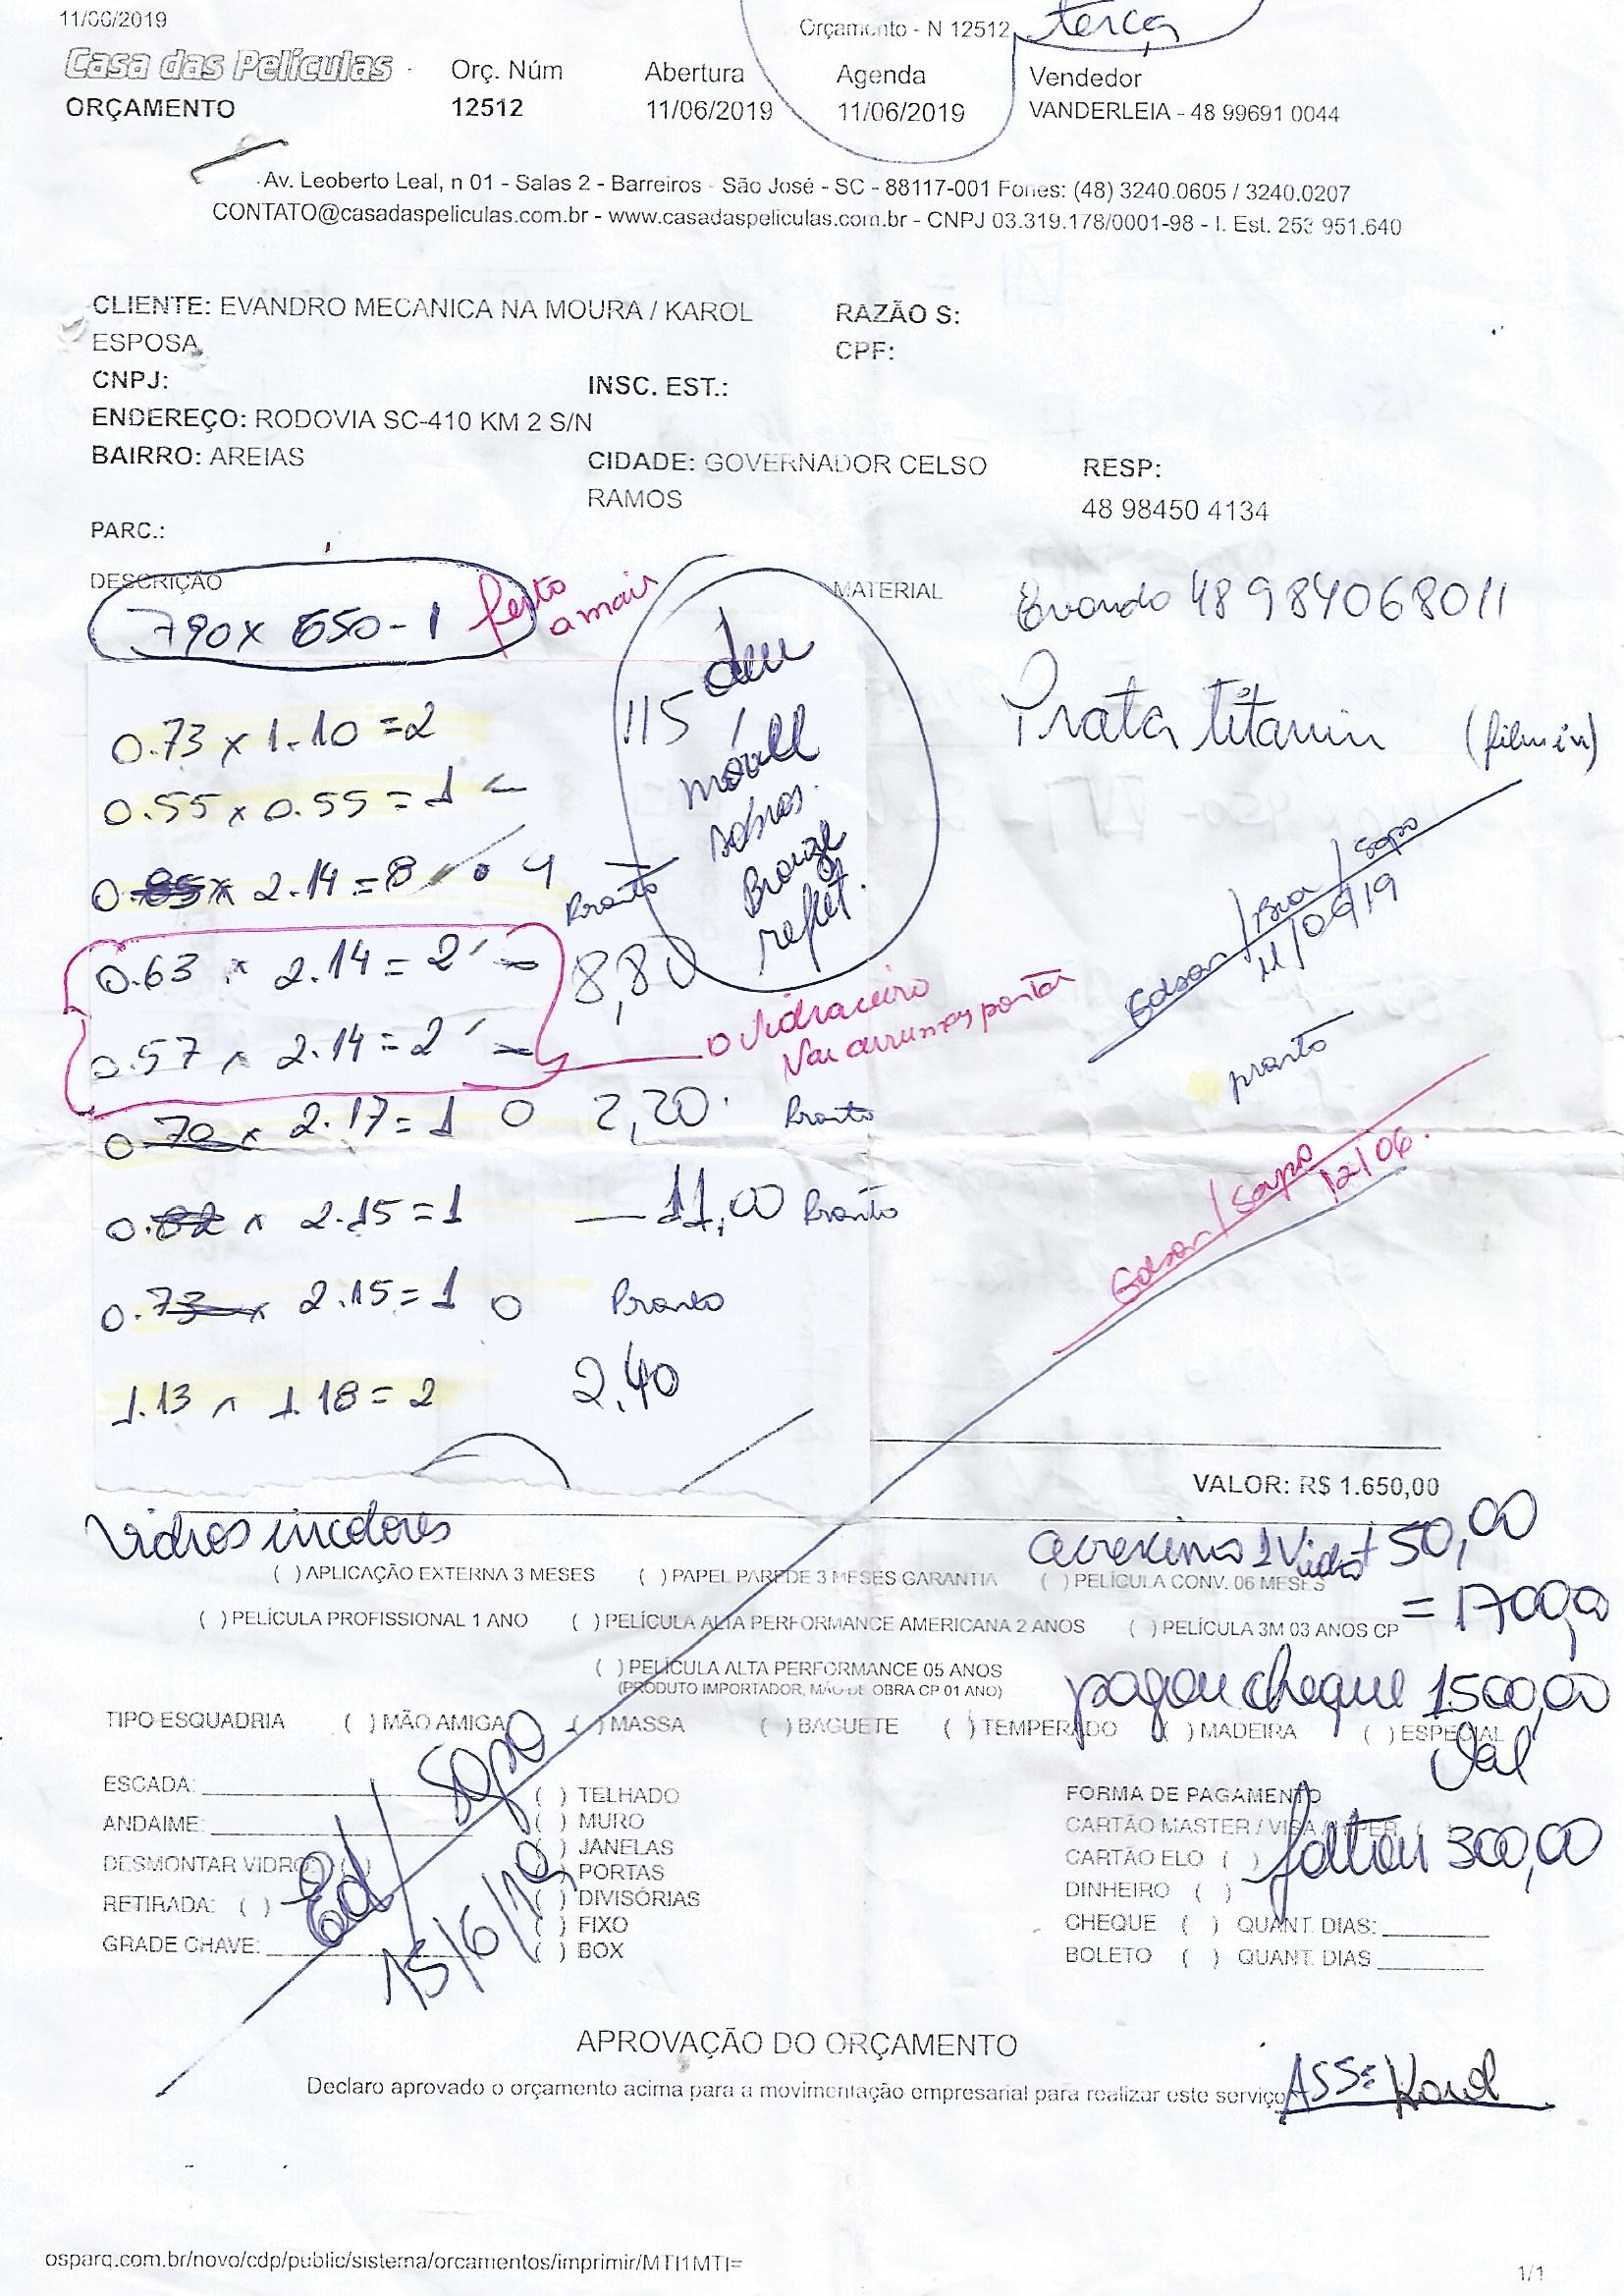 11/06/2019
Orçamento - N 12512
terça
Casa das Películas
ORÇAMENTO
Orç. Núm
12512
Abertura
11/06/2019
Agenda
11/06/2019
Vendedor
VANDERLEIA - 48 99691 0044
Av. Leoberto Leal, n 01 - Salas 2 - Barreiros - São José - SC - 88117-001 Fones: (48) 3240.0605 / 3240.0207
CONTATO@casadaspeliculas.com.br - www.casadaspeliculas.com.br - CNPJ 03.319.178/0001-98 - I. Est. 253 951.640
CLIENTE: EVANDRO MECANICA NA MOURA / KAROL
ESPOSA
RAZÃO S:
CPF:
CNPJ:
INSC. EST.:
ENDEREÇO: RODOVIA SC-410 KM 2 S/N
BAIRRO: AREIAS
CIDADE: GOVERNADOR CELSO
RAMOS
RESP:
48 98450 4134
PARC.:
DESCRIÇÃO
MATERIAL
790 x 650 - 1
feito
a mais
Evando 48 984068011
Prata titanin
0.73 x 1.10 = 2
115 deu
móvell
sobras
Bronze
reflet.
0.55 x 0.55 = 1
0.85 x 2.14 = 8 4
Pronto
8,80
0.63 x 2.14 = 2
0.57 x 2.14 = 2
o vidraceiro
Vai arrumar portas
Edson / Bra / Sapo
11/06/19
pronto
0.70 x 2.17 = 1 0 2,20 Pronto
Edson / Sapo
12/06.
0.82 x 2.15 = 1 11,00 Pronto
0.73 x 2.15 = 1 0 Pronto
1.13 x 1.18 = 2 2,40
VALOR: R$ 1.650,00
Vidros incolores
acrescimo 1 Vidro + 50,00
= 1700,00
( ) APLICAÇÃO EXTERNA 3 MESES ( ) PAPEL PAREDE 3 MESES GARANTIA ( ) PELÍCULA CONV. 06 MESES
( ) PELÍCULA PROFISSIONAL 1 ANO ( ) PELÍCULA ALTA PERFORMANCE AMERICANA 2 ANOS ( ) PELÍCULA 3M 03 ANOS CP
( ) PELÍCULA ALTA PERFORMANCE 05 ANOS
(PRODUTO IMPORTADOR, MÃO DE OBRA CP 01 ANO)
pagou cheque 1500,00
Val
TIPO ESQUADRIA ( ) MÃO AMIGA ( ) MASSA ( ) BAGUETE ( ) TEMPERADO ( ) MADEIRA ( ) ESPECIAL
ESCADA:
ANDAIME:
DESMONTAR VIDRO: ( )
RETIRADA: ( )
GRADE CHAVE:
Ed / Sapo
15/6/19
( ) TELHADO
( ) MURO
( ) JANELAS
( ) PORTAS
( ) DIVISÓRIAS
( ) FIXO
( ) BOX
FORMA DE PAGAMENTO
CARTÃO MASTER / VISA / HIPER ( )
CARTÃO ELO ( )
faltou 300,00
DINHEIRO ( )
CHEQUE ( ) QUANT. DIAS:
BOLETO ( ) QUANT. DIAS
APROVAÇÃO DO ORÇAMENTO
Declaro aprovado o orçamento acima para a movimentação empresarial para realizar este serviço
ASS: Karol
osparq.com.br/novo/cdp/public/sistema/orcamentos/imprimir/MTI1MTI=
1/1